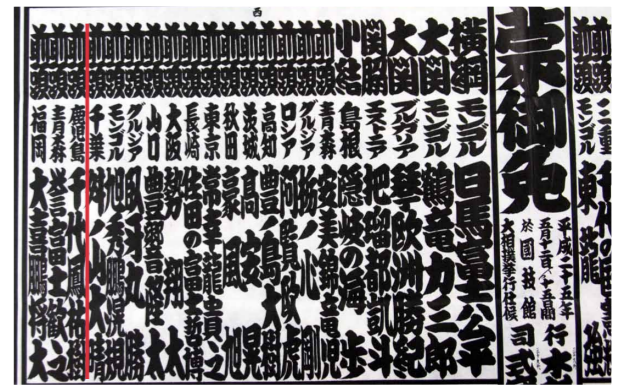 前頭 モンゴル 東龍強
蒙御免
平成二十五年
五月十二日ヨリ十五日間
於國技館
大相撲挙行仕候
行司
西
横綱 モンゴル 日馬富士公平
大関 モンゴル 鶴竜力三郎
大関 ブルガリア 琴欧洲勝紀
関脇 エストニア 把瑠都凱斗
小結 島根 隠岐の海歩
前頭 青森 安美錦竜児
前頭 グルジア 栃ノ心剛
前頭 ロシア 阿覧欧虎
前頭 高知 豊ノ島大樹
前頭 茨城 高安晃
前頭 秋田 豪風旭
前頭 東京 常幸龍貴之
前頭 長崎 佐田の富士哲博
前頭 大阪 勢翔太
前頭 山口 豊響隆太
前頭 グルジア 臥牙丸勝
前頭 モンゴル 旭秀鵬滉規
前頭 千葉 舛ノ山大晴
前頭 鹿児島 千代鳳祐樹
前頭 青森 誉富士歓之
前頭 福岡 大喜鵬将大